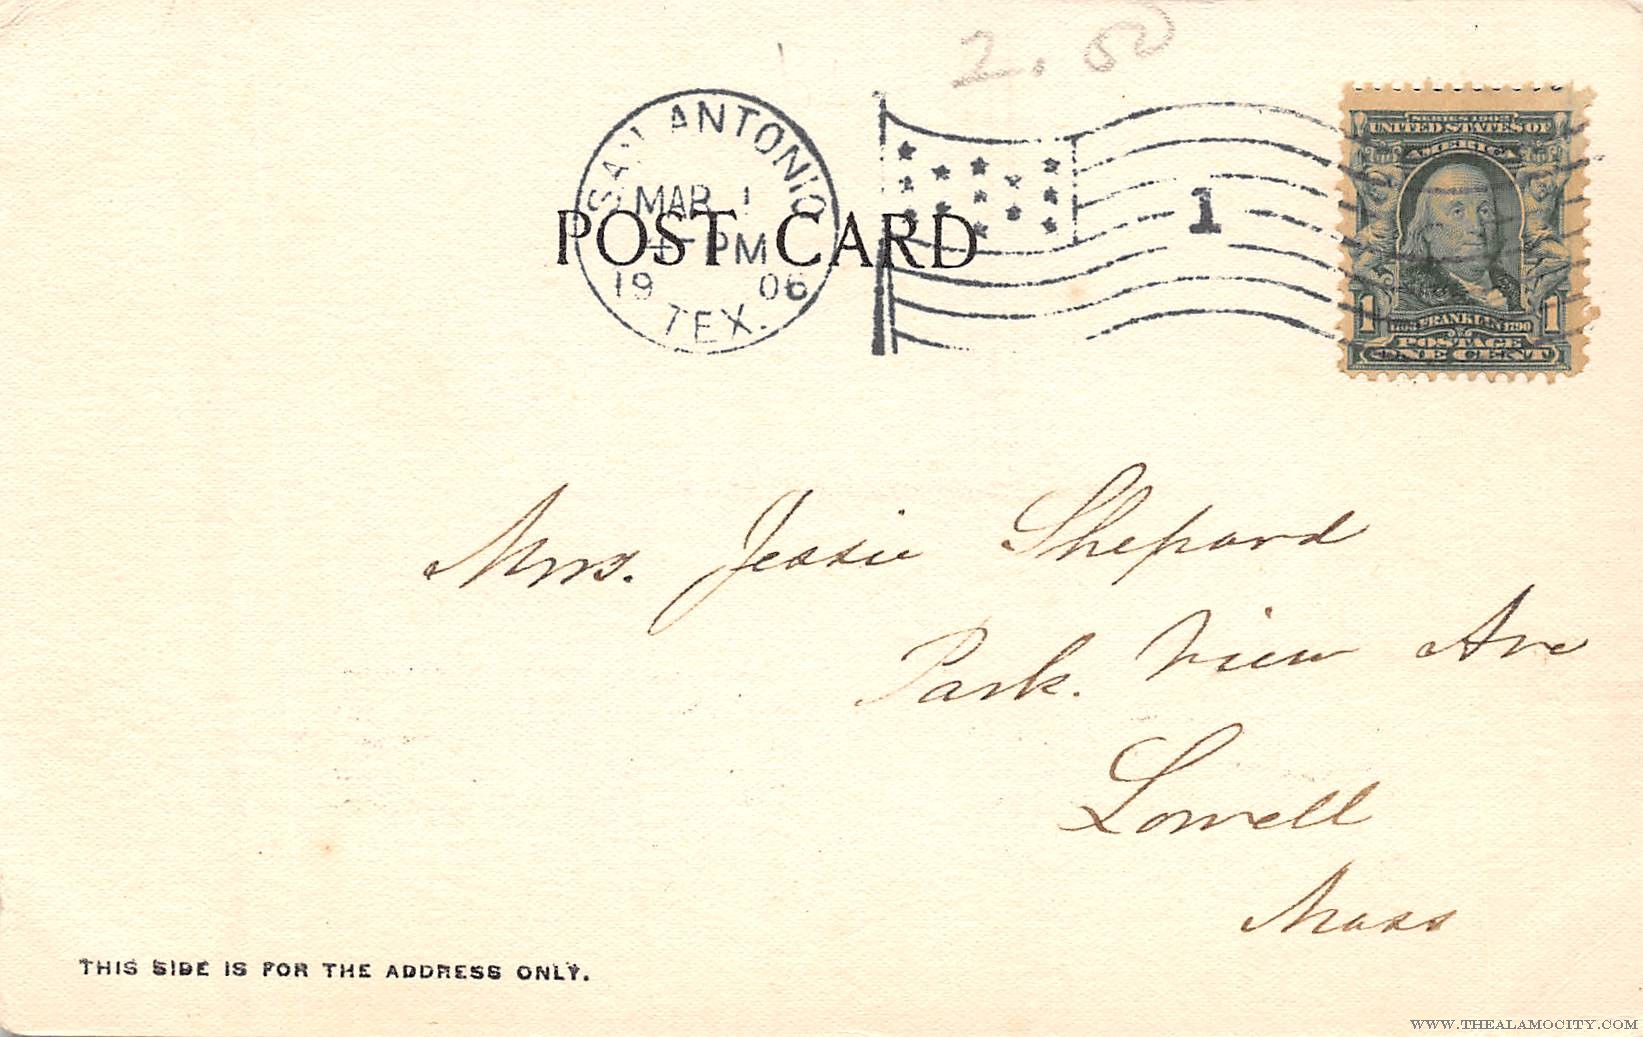 2.00
SAN ANTONIO
MAR 1
4- PM
19 06
TEX.
1
POST CARD
SERIES 1902
UNITED STATES OF
AMERICA
1 1
1706 FRANKLIN 1790
POSTAGE
ONE CENT
Mrs. Jessie Shepard
Park. View Ave
Lowell
Mass
THIS SIDE IS FOR THE ADDRESS ONLY.
WWW.THEALAMOCITY.COM